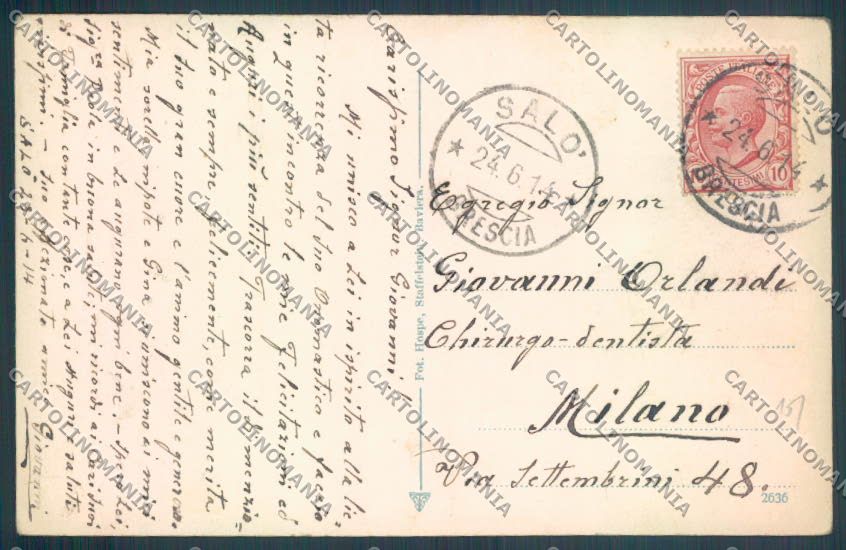 Carissimo Signor Giovanni!
Mi unisco a Lei in ispirito alla lie-
ta ricorrenza del suo Onomastico e faccio
in quell'incontro le mie felicitazioni ed
Auguri i più sentiti. Trascorra il
e sempre felicemente, come merita
il suo gran cuore e l'animo gentile e generoso.
Mia sorella, nipote e Gina uniscono ai miei
sentimenti e Le augurano ogni bene. - Spero Lei,
Sig.ra Paola in buona salute, mi ricordi ai cari suoi
di Famiglia con tante cose, e a Lei auguri e saluti
Suo affezionato amico Giovanni
SALÒ 24-6-14
Fot. Hospe, Staffelstein, Baviera.
SALO'
24.6.14
BRESCIA
POSTE ITALIANE
CENTESIMI 10
24.6.14
BRESCIA
Egregio Signor
Giovanni Orlandi
Chirurgo-dentista
Milano
Via Settembrini 48.
151
2636
CARTOLINOMANIA